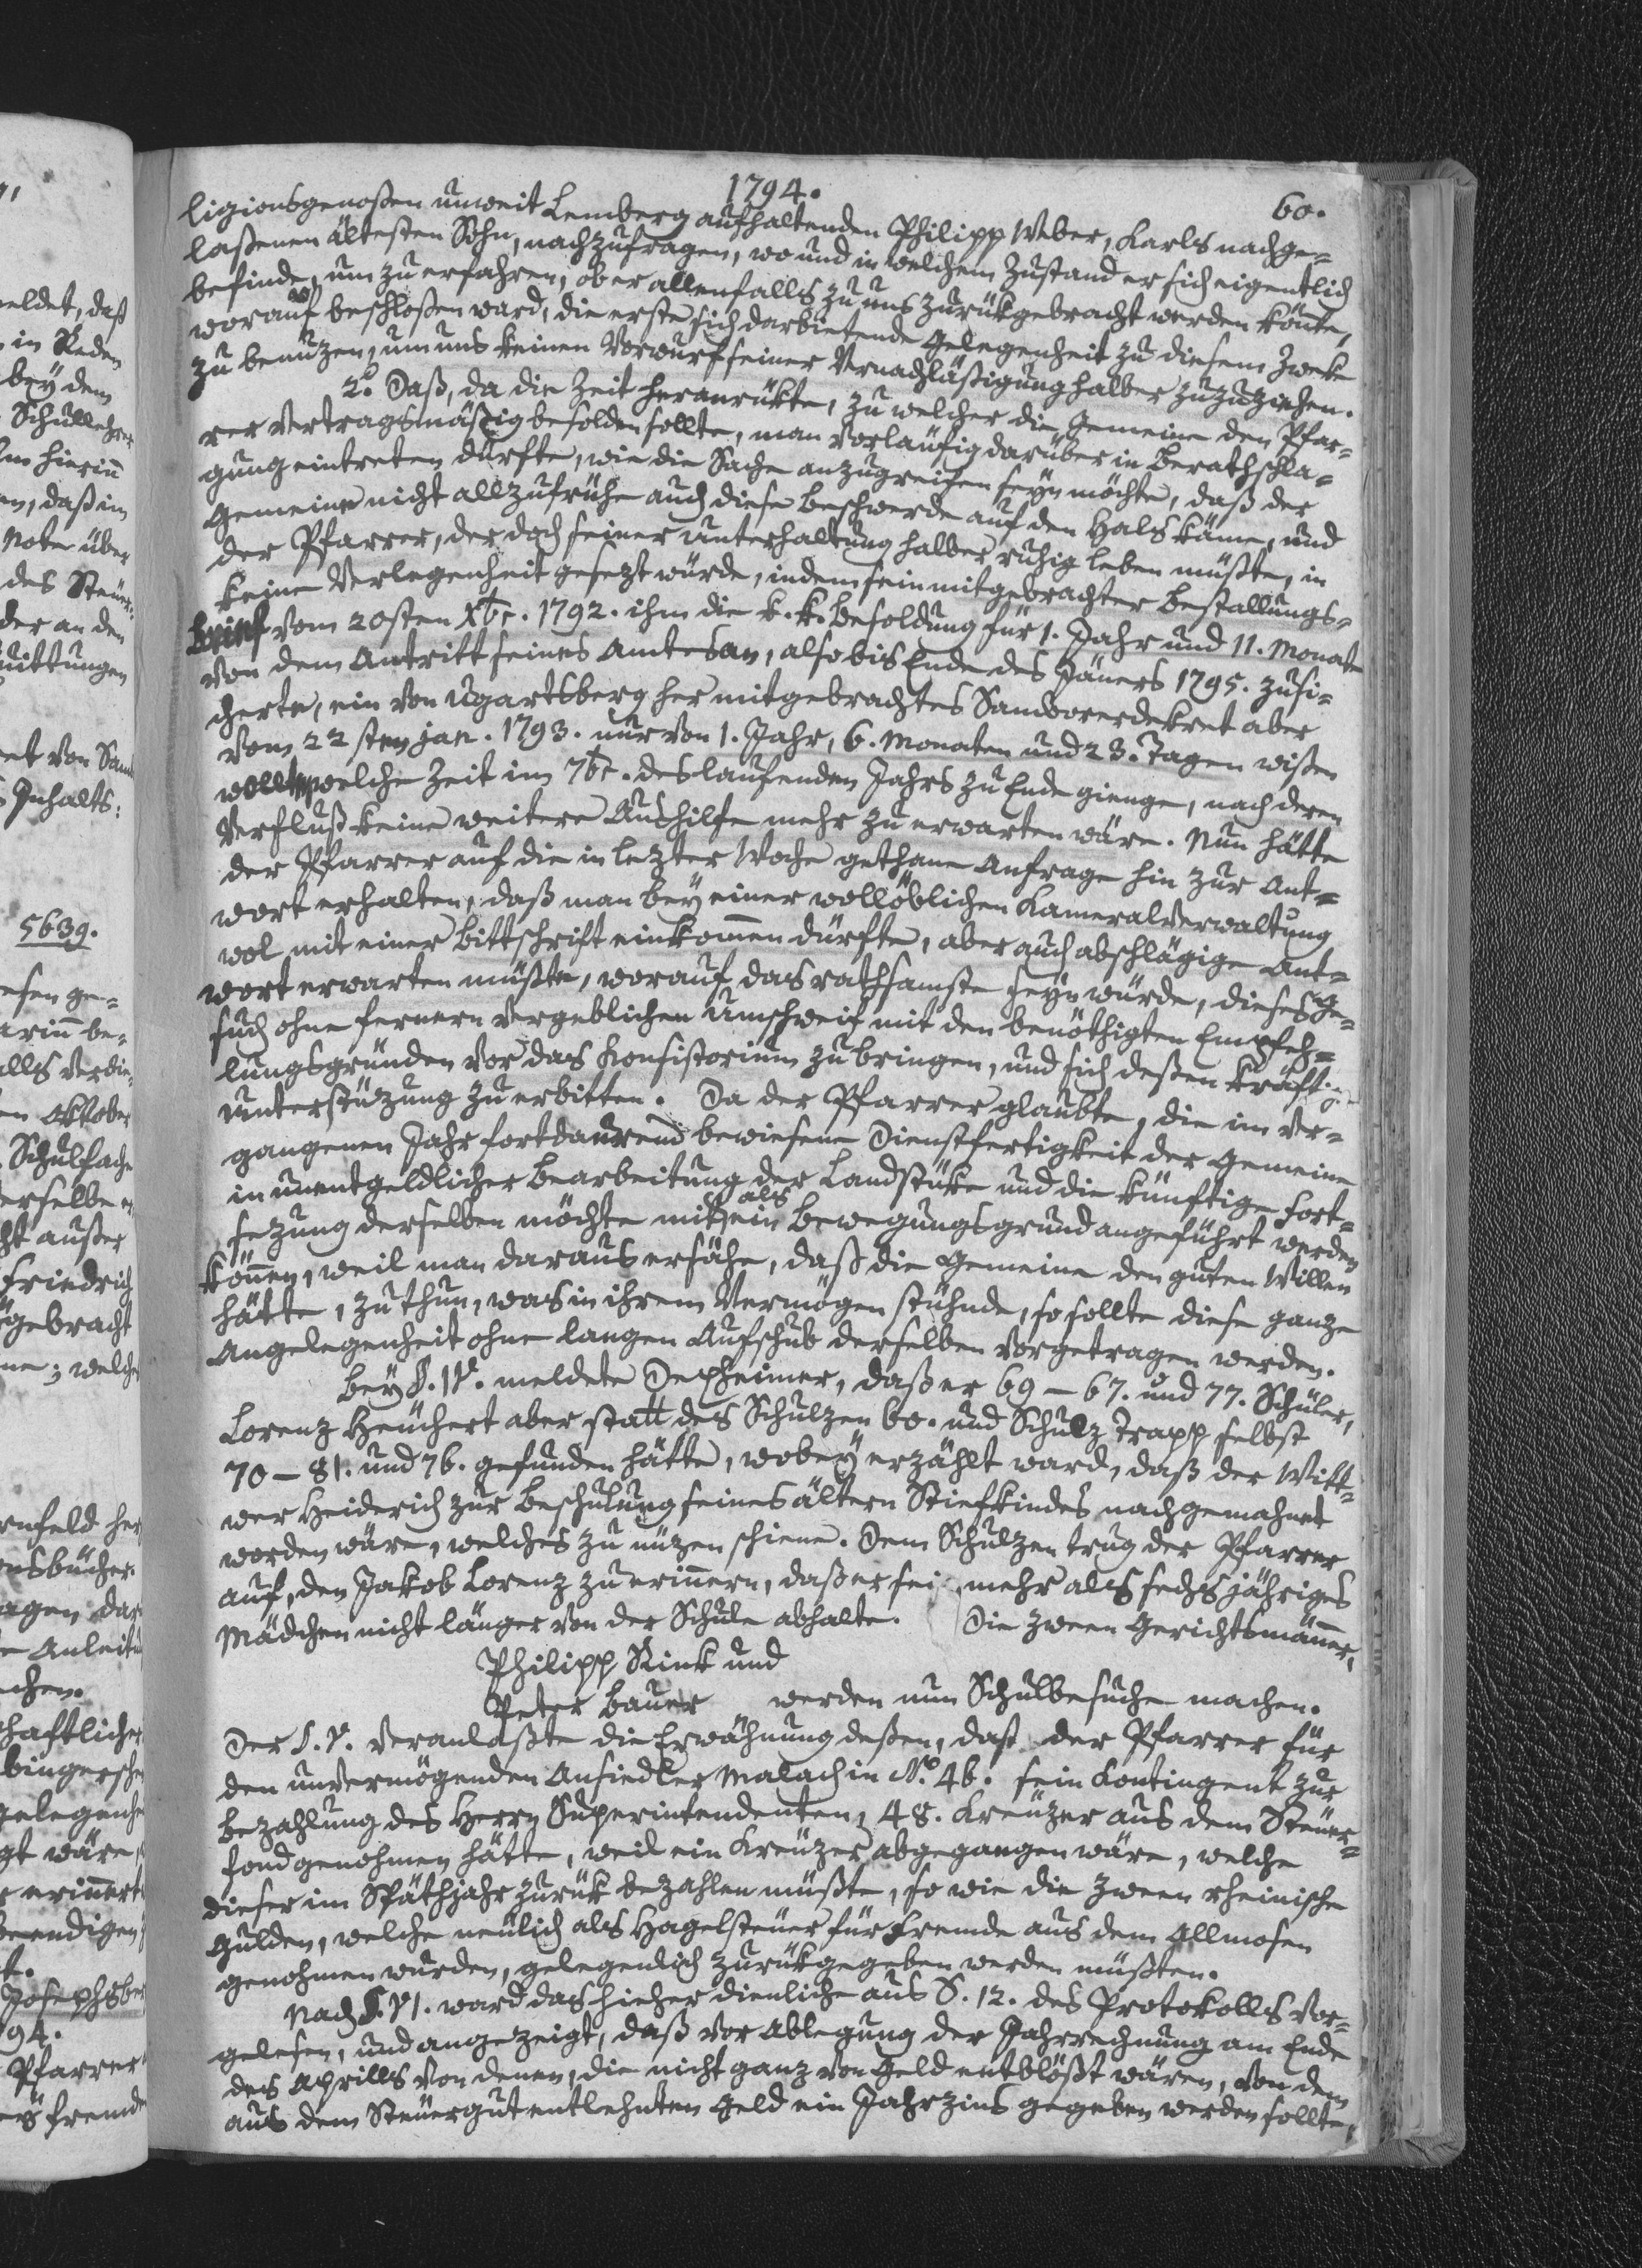 1794.
60.
ligionsgenoßen unweit Lemberg aufhaltenden Philipp Weber, Karls nachge=
laßenen ältesten Sohn, nachzufragen, wo und in welchem Zustand er sich eigentlich
befinde, um zu erfahren, ob er allenfalls zu uns zurükgebracht werden könte,
worauf beschloßen ward, die erste sich darbietende Gelegenheit zu diesem Zweke
zu benuzen, um uns keinen Vorwurf seiner Vernachläßigung halber zuzuziehen.
2.° Daß, da die Zeit heranrükte, zu welcher die Gemeine den Pfar=
rer Vertragsmäßig besolden sollte, man vorläufig darüber in Berathschla=
gung eintreten dürfte, wie die Sache anzugreifen seyn möchte, daß der
Gemeine nicht allzufrühe auch diese Beschwerde auf den Hals käme, und
der Pfarrer, der doch seiner Unterhaltung halber ruhig leben müßte, in
keine Verlegenheit gesezt würde, indem sein mitgebrachter Bestallungs=
Brief vom 20sten Xbr. 1792. ihm die k. k. Besoldung für 1. Jahr und 11. Monate
von dem Antritt seines Amtes an, also bis Ende des Jäners 1795. zusi=
cherte, ein von Ugartsberg her mitgebrachtes Samborerdekret aber
vom 22sten Jan. 1793. nur von 1. Jahr, 6. Monaten und 23. Tagen wißen
wollte, welche Zeit im 7br. des laufenden Jahrs zu Ende gienge, nach deren
Verfluß keine weitere Aushilfe mehr zu erwarten wäre. Nun hätte
der Pfarrer auf die in lezter Woche gethane Anfrage hin zur Ant=
wort erhalten, daß man bey einer wollöblichen Kameralverwaltung
wol mit einer Bittschrift einkommen dürfte, aber auch abschlägige Ant=
wort erwarten müßte, worauf das rathsamste seyn würde, dieses Ge=
such ohne fernern vergeblichen Umschweif mit den benöthigten Empfeh=
lungsgründen vor das Konsistorium zu bringen, und sich deßen kräftige
Unterstüzung zu erbitten. Da der Pfarrer glaubte, die im ver=
gangenen Jahr fortdaurend bewiesene Dienstfertigkeit der Gemeine
in unentgeldlicher Bearbeitung der Landstüke und die künftige Fort=
sezung derselben möchte mit als ein Bewegungsgrund angeführt werden
können, weil man daraus ersähe, daß die Gemeine den guten Willen
hätte, zu thun, was in ihrem Vermögen stühnde, so sollte diese ganze
Angelegenheit ohne langen Aufschub derselben vorgetragen werden.
Bey §. IV. meldete Depheimer, daß er 69 – 67. und 77. Schüler,
Lorenz Heuchert aber statt des Schulzen 60. und Schulz Trapp selbst
70 – 81. und 76. gefunden hätte, wobey erzählt ward, daß der Witt=
wer Heiderich zur Beschulung seines ältern Stiefkindes nachgemahnt
worden wäre, welches zu nüzen schiene. Dem Schulzen trug der Pfarrer
auf, den Jakob Lorenz zu erinnern, daß er sein mehr als sechs jähriges
Mädchen nicht länger von der Schule abhalte. Die zween Gerichtsmänner,
Philipp Rink und
Peter Bauer werden nun Schulbesuche machen.
Der §. V. veranlaßte die Erwähnung deßen, daß der Pfarrer für
den unvermögenden Ansiedler Malach in N.° 46. sein Kontingent zur
Bezahlung des Herrn Superintendenten, 48. Kreüzer aus dem Steüer=
fond genohmen hätte, weil ein Kreüzer abgegangen wäre, welche
dieser im Späthjahr zurük bezahlen müßte, so wie die zween rheinische
Gulden, welche neulich als Hagelsteuer für Fremde aus dem Allmosen
genohmen wurden, gelegenlich zurükgegeben werden müßten.
Nach §. VI. ward das hieher dienliche aus S. 12. des Protokolls vor=
gelesen, und angezeigt, daß vor Ablegung der Jahrrechnung am Ende
des Aprills von denen, die nicht ganz von Geld entblößt wären, von dem
aus dem Steuergut entlehnten Geld ein Jahrzins gegeben werden sollte,